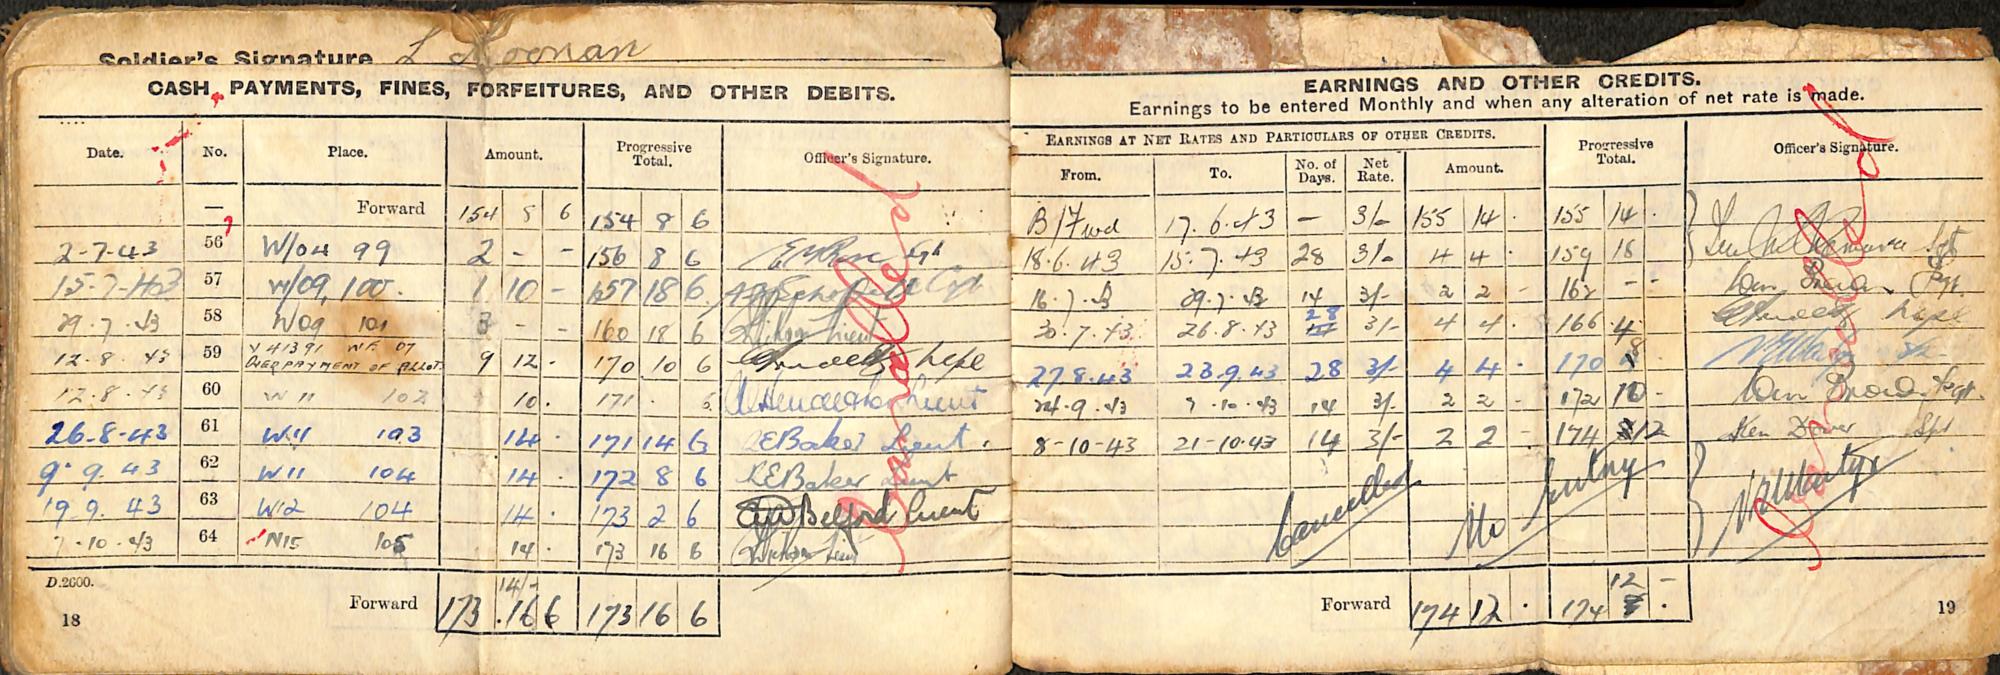 Soldier's Signature L Noonan
CASH PAYMENTS, FINES, FORFEITURES, AND OTHER DEBITS.
Date. No. Place. Amount. Progressive Total. Officer's Signature.
— Forward 154 8 6 154 8 6
2-7-43 56 W/04 99 2 - - 156 8 6
15-7-43 57 W/09 100. 1 10 - 157 18 6
29.7.43 58 W09 101 3 - - 160 18 6 Lieut
12.8.43 59 V41391 WE 07 OVERPAYMENT OF ALLOT. 9 12 . 170 10 6
12.8.43 60 W11 102 10. 171 . 6 Henderson Lieut
26-8-43 61 W11 103 14 . 171 14 6 REBaker Lieut.
9.9.43 62 W11 104 14 . 172 8 6 REBaker Lieut
19.9.43 63 W12 104 14 . 173 2 6 Belford Lieut
7.10.43 64 N15 105 14 . 173 16 6 Lieut
Cancelled
D.2600.
14/-
Forward 173 .16 6 173 16 6
18
EARNINGS AND OTHER CREDITS.
Earnings to be entered Monthly and when any alteration of net rate is made.
EARNINGS AT NET RATES AND PARTICULARS OF OTHER CREDITS. Progressive Total. Officer's Signature.
From. To. No. of Days. Net Rate. Amount.
B/Fwd 17.6.43 — 3/- 155 14 . 155 14 .
18.6.43 15.7.43 28 3/- 4 4 . 159 18 Sgt
16.7.43 29.7.43 14 3/- 2 2 - 162 - -
30.7.43 26.8.43 28 3/- 4 4 . 166 4
27.8.43 23.9.43 28 3/- 4 4 . 170 8
24.9.43 7.10.43 14 3/- 2 2 - 172 10 -
8-10-43 21-10-43 14 3/- 2 2 - 174 12 Ken
Cancelled No Entry
Cancelled
Forward 174 12 . 174 12 -
19